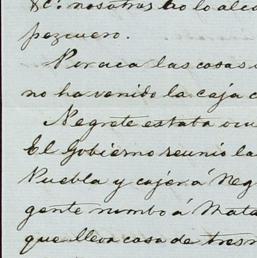 &c. nosotras no lo alca
pezcuero.
Por aca las cosas
no ha venido la caja c
Negrete estata ocu
El Gobierno reunio la
Puebla y cojer á Neg
gente rumbo á Mata
que lleva casa de tres m